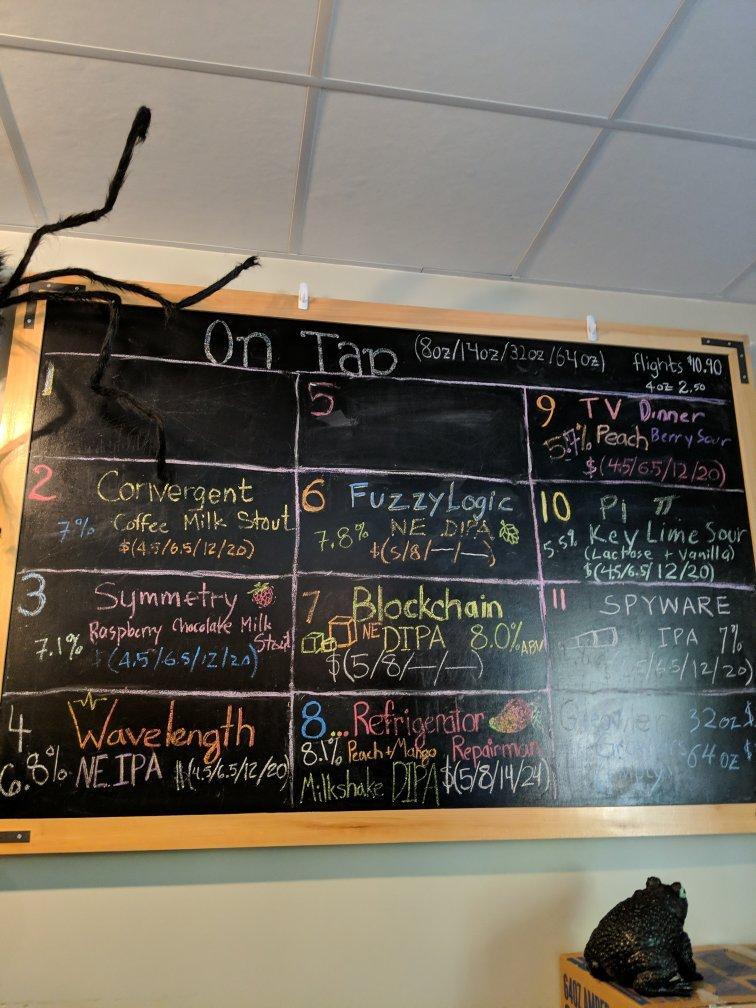 On Tap (8oz/14oz/32oz/64oz) flights $10.90
4oz 2.50
1
2 Convergent
7% Coffee Milk Stout
$(4.5/6.5/12/20)
3 Symmetry
7.1% Raspberry Chocolate Milk
Stout
$(4.5/6.5/12/20)
4 Wavelength
6.8% NE IPA $(4.5/6.5/12/20)
5
6 Fuzzy Logic
7.8% NE DIPA
$(5/8/—/—)
7 Blockchain
NE DIPA 8.0% ABV
$(5/8/—/—)
8... Refrigerator
8.1% Peach + Mango Repairman
Milkshake DIPA $(5/8/14/24)
9 TV Dinner
Peach Berry Sour
$(4.5/6.5/12/20)
10 Pi π
5.5% Key Lime Sour
(Lactose + Vanilla)
$(4.5/6.5/12/20)
11 SPYWARE
IPA 7%
/6.5/12/20)
32oz $
64oz $
640Z AMBER